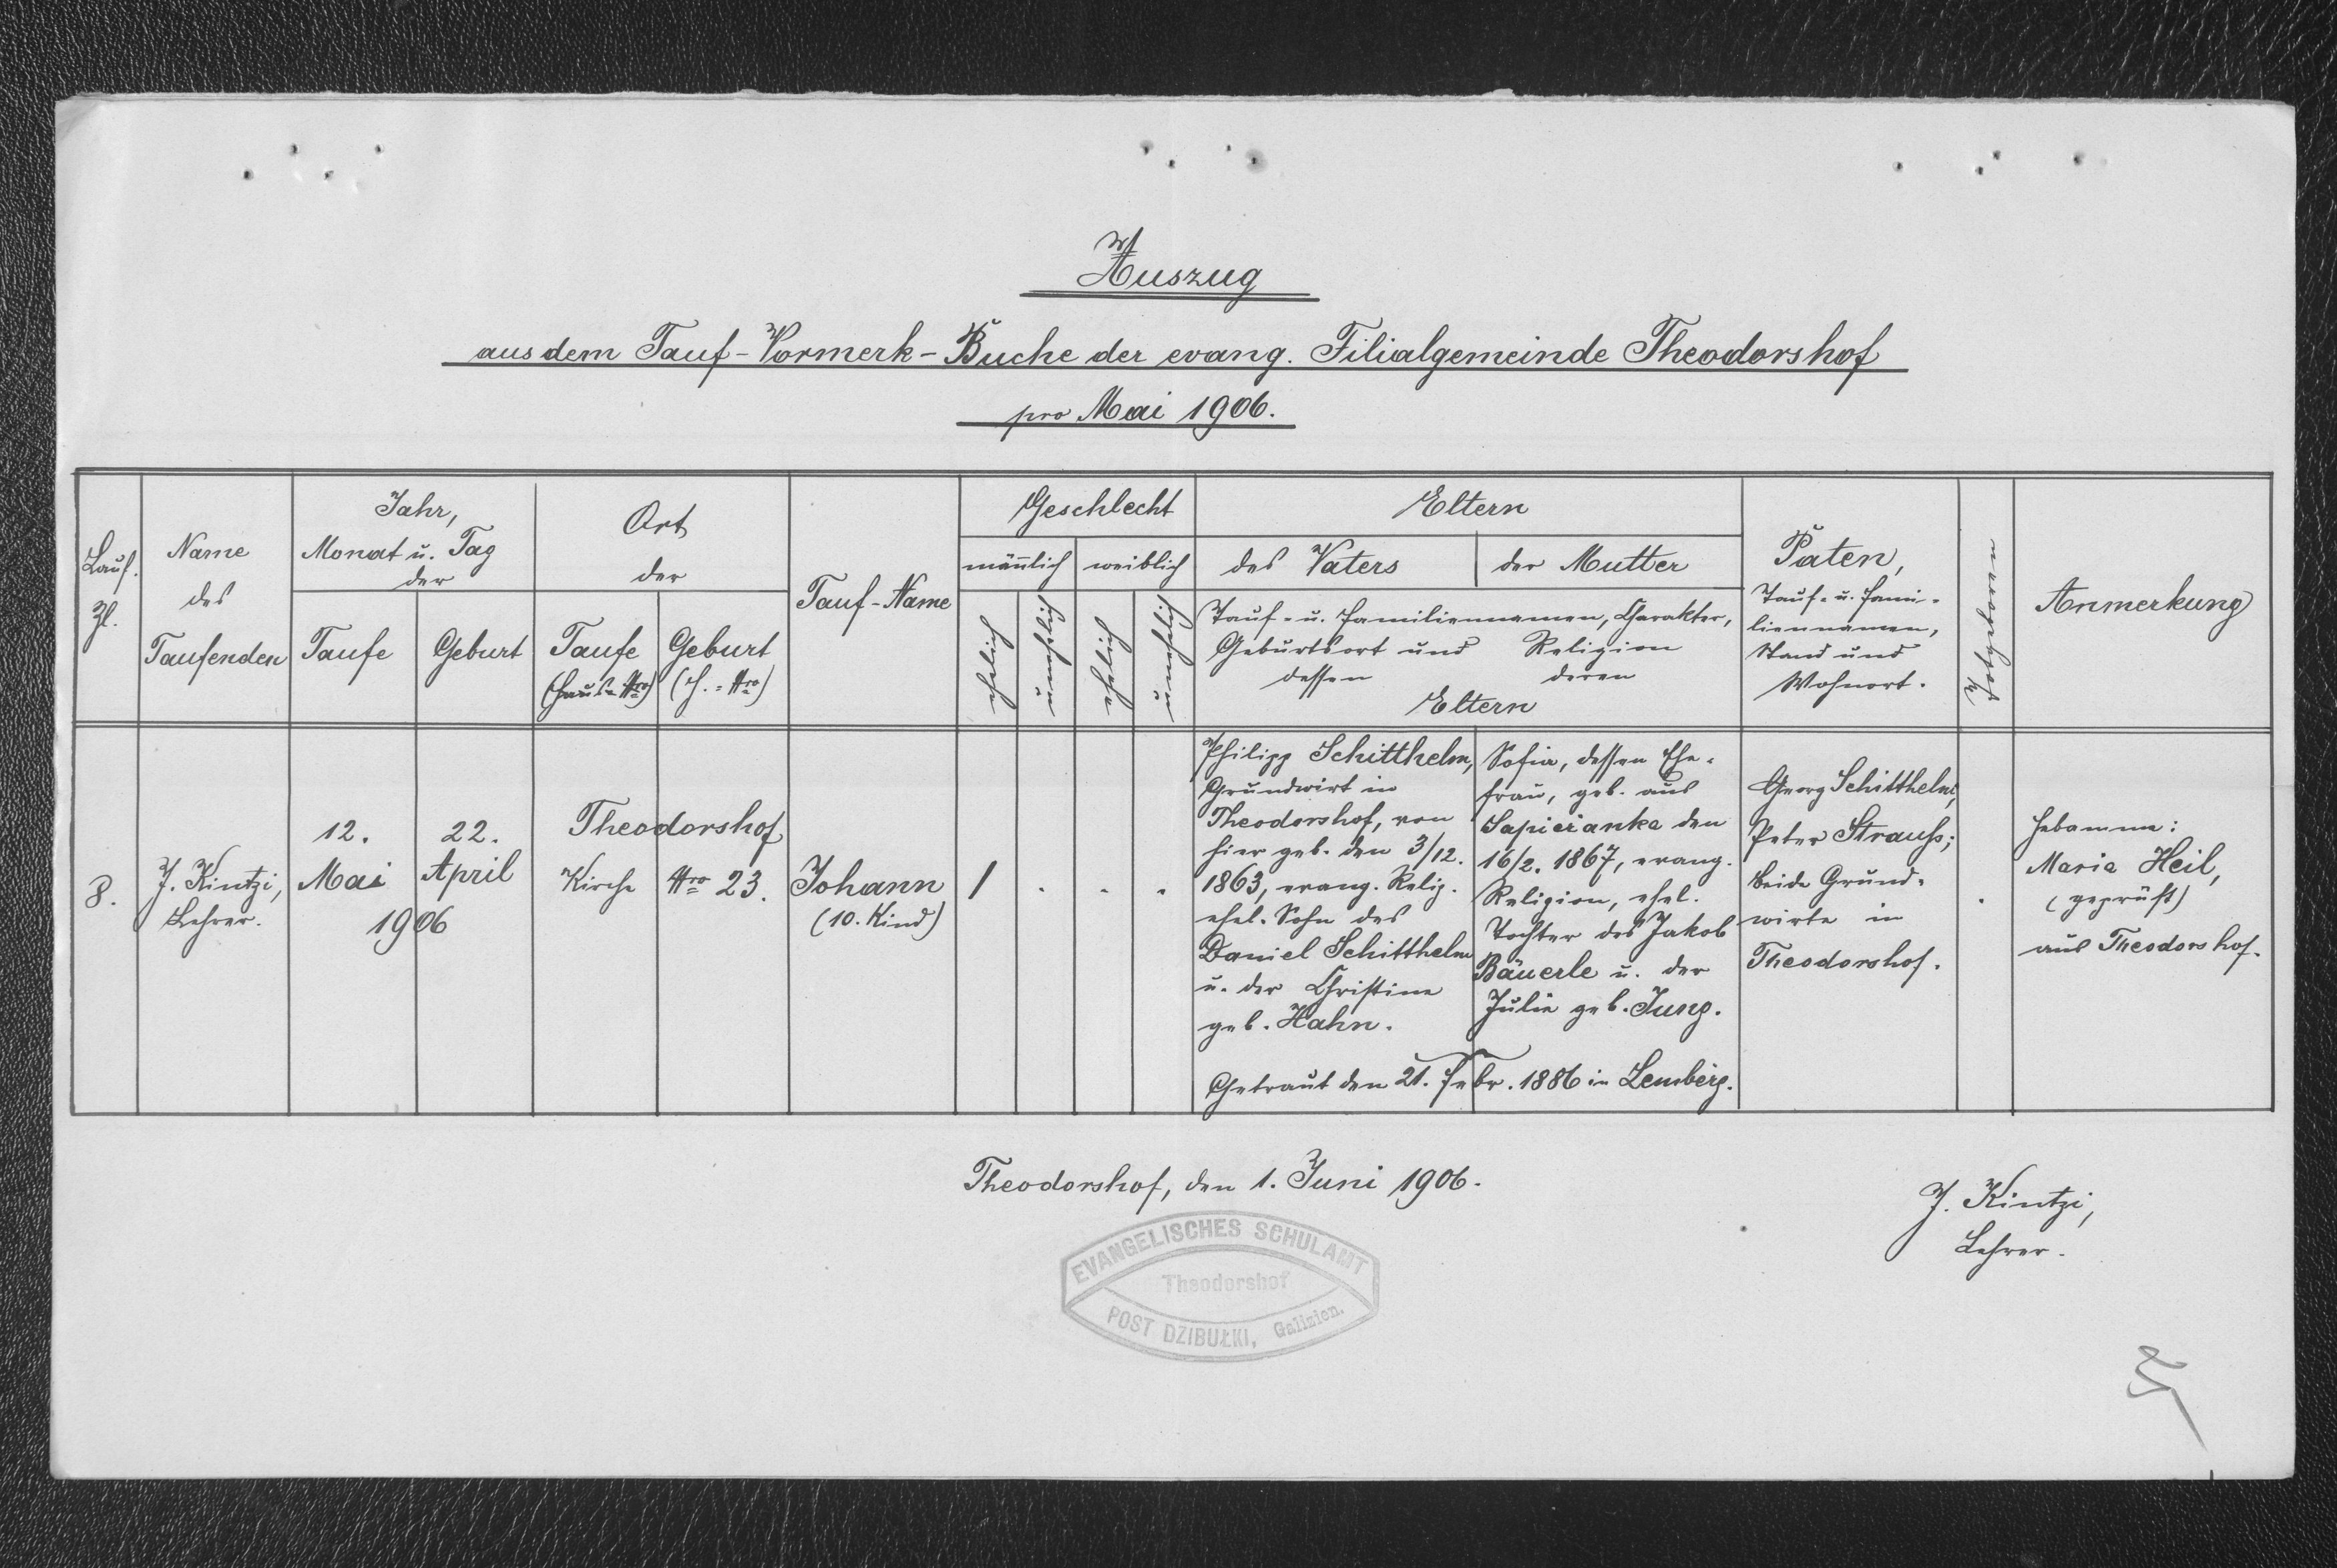 Auszug
aus dem Tauf-Vormerk-Buche der evang. Filialgemeinde Theodorshof
pro Mai 1906.
Lauf.
Zl.
Name
des
Taufenden
Jahr,
Monat u. Tag
der
Taufe
Geburt
Ort
der
Taufe
(Haus-Nro)
Geburt
(H.-Nro)
Tauf-Name
Geschlecht
männlich
weiblich
ehelich
unehelich
ehelich
unehelich
Eltern
des Vaters
der Mutter
Tauf- u. Familiennamen, Charakter,
Geburtsort und Religion
dessen deren
Eltern
Paten,
Tauf- u. Fami-
liennamen,
Stand und
Wohnort.
Totgeboren
Anmerkung
8.
J. Kintzi,
Lehrer.
12.
Mai
22.
April
1906
Theodorshof
Kirche
Nro 23.
Johann
(10. Kind)
1
Philipp Schitthelm,
Grundwirt in
Theodorshof, von
hier geb. den 3/12.
1863, evang. Relig.
ehel. Sohn des
Daniel Schitthelm
u. der Christine
geb. Hahn.
Sofia, dessen Ehe-
frau, geb. aus
Sapieżanka den
16/2. 1867, evang.
Religion, ehel.
Tochter des Jakob
Bäuerle u. der
Julie geb. Jung.
Getraut den 21. Febr. 1886 in Lemberg.
Georg Schitthelm,
Peter Strauß;
beide Grund-
wirte in
Theodorshof.
Hebamme:
Maria Heil,
(geprüft)
aus Theodorshof.
Theodorshof, den 1. Juni 1906.
J. Kintzi,
Lehrer.
EVANGELISCHES SCHULAMT
Theodorshof
POST DZIBUŁKI, Galizien.